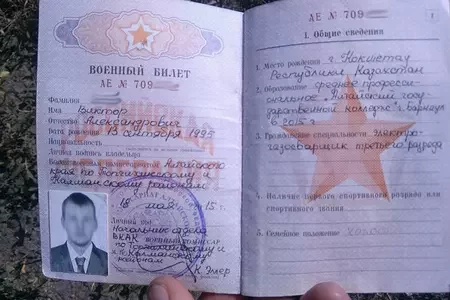 ВОЕННЫЙ БИЛЕТ
АЕ № 709
Фамилия
Имя Виктор
Отчество Александрович
Дата рождения 13 октября 1995
Национальность
Личная подпись владельца
Алтайского
края по
районам
15 г.
Личный
Начальник отдела
ВКАК
ВОЕННЫЙ КОМИССАР
районам
К. Эллер
АЕ № 709
1
I. Общие сведения
1. Место рождения г. Кокшетау
Республики Казахстан
2. Образование среднее професси-
ональное «Алтайский госу-
дарственный колледж» г. Барнаул
в 2015 г.
3. Гражданские специальности Электро-
газосварщик третьего разряда
4. Наличие первого спортивного разряда или
спортивного звания
5. Семейное положение холост